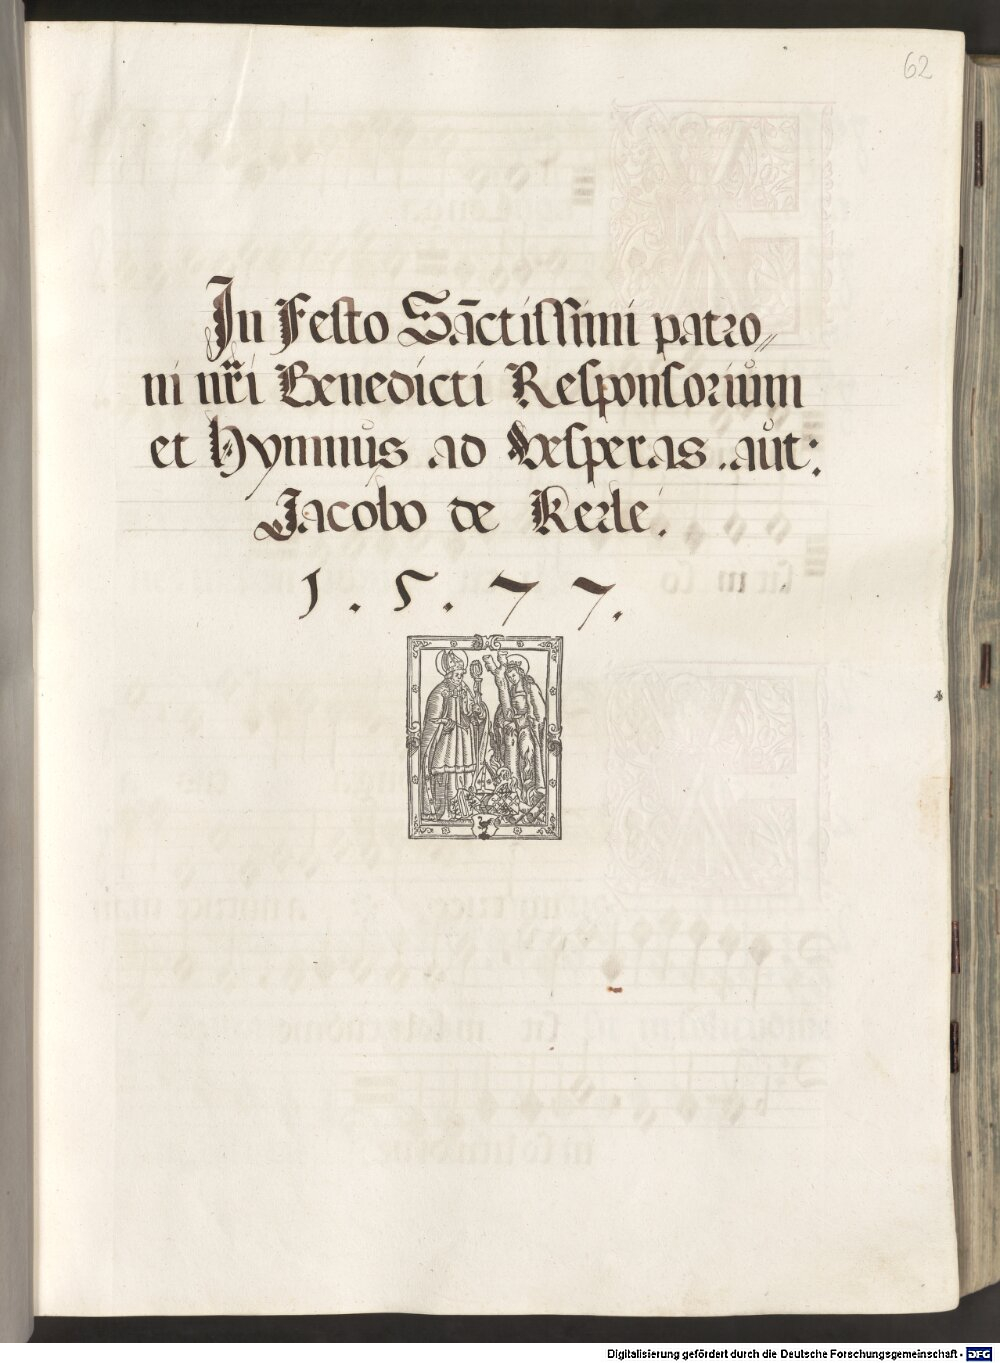 62
In Festo Sāctissimi patro〃
ni nr̄i Benedicti Responsorium
et Hymnus ad Vesperas . aut:
Jacobo de Kerle .
1 . 5 . 7 7 .
Digitalisierung gefördert durch die Deutsche Forschungsgemeinschaft - DFG